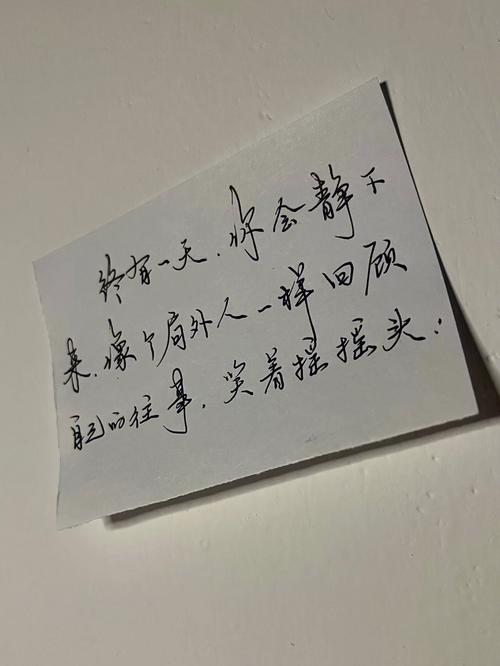 终有一天,你会静下
来,像个局外人一样回顾
自己的往事,笑着摇摇头.